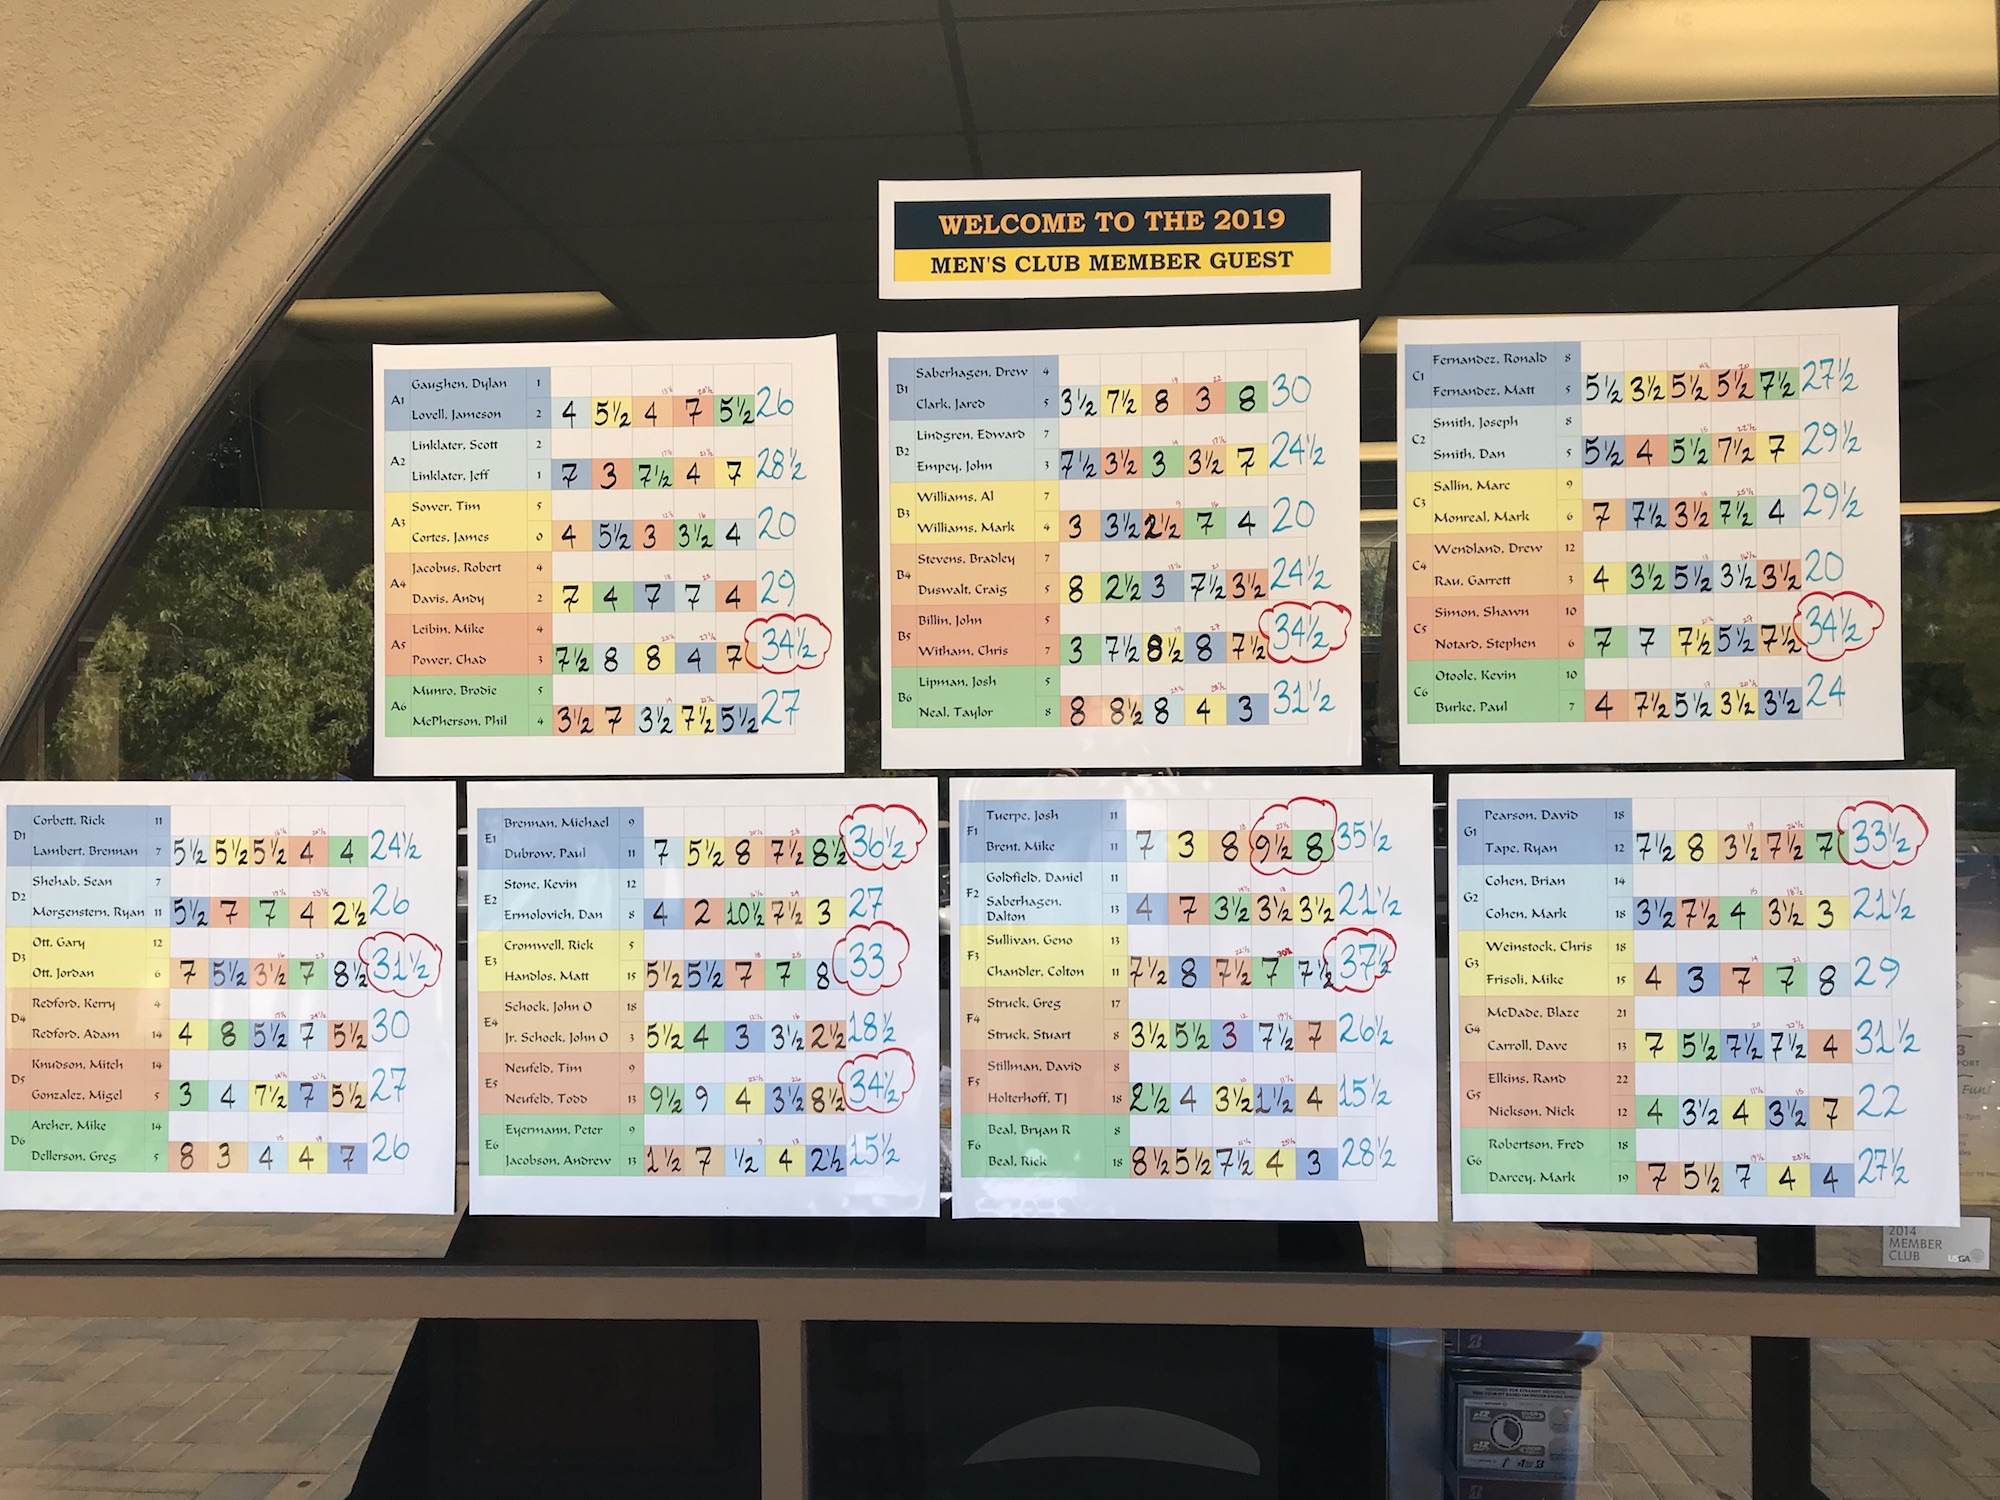 WELCOME TO THE 2019
MEN'S CLUB MEMBER GUEST
A1 Gaughen, Dylan 1
Lovell, Jameson 2 4 5½ 4 7 5½ 26
A2 Linklater, Scott 2
Linklater, Jeff 1 7 3 7½ 4 7 28½
A3 Sower, Tim 5
Cortes, James 0 4 5½ 3 3½ 4 20
A4 Jacobus, Robert 4
Davis, Andy 2 7 4 7 7 4 29
A5 Leibin, Mike 4
Power, Chad 3 7½ 8 8 4 7 34½
A6 Munro, Brodie 5
McPherson, Phil 4 3½ 7 3½ 7½ 5½ 27
B1 Saberhagen, Drew 4
Clark, Jared 5 3½ 7½ 8 3 8 30
B2 Lindgren, Edward 7
Empey, John 3 7½ 3½ 3 3½ 7 24½
B3 Williams, Al 7
Williams, Mark 4 3 3½ 2½ 7 4 20
B4 Stevens, Bradley 7
Duswalt, Craig 5 8 2½ 3 7½ 3½ 24½
B5 Billin, John 5
Witham, Chris 7 3 7½ 8½ 8 7½ 34½
B6 Lipman, Josh 5
Neal, Taylor 8 8 8½ 8 4 3 31½
C1 Fernandez, Ronald 8
Fernandez, Matt 5 5½ 3½ 5½ 5½ 7½ 27½
C2 Smith, Joseph 8
Smith, Dan 5 5½ 4 5½ 7½ 7 29½
C3 Sallin, Marc 9
Monreal, Mark 6 7 7½ 3½ 7½ 4 29½
C4 Wendland, Drew 12
Rau, Garrett 3 4 3½ 5½ 3½ 3½ 20
C5 Simon, Shawn 10
Notard, Stephen 6 7 7 7½ 5½ 7½ 34½
C6 Otoole, Kevin 10
Burke, Paul 7 4 7½ 5½ 3½ 3½ 24
D1 Corbett, Rick 11
Lambert, Brennan 7 5½ 5½ 5½ 4 4 24½
D2 Shehab, Sean 7
Morgenstern, Ryan 11 5½ 7 7 4 2½ 26
D3 Ott, Gary 12
Ott, Jordan 6 7 5½ 3½ 7 8½ 31½
D4 Redford, Kerry 4
Redford, Adam 14 4 8 5½ 7 5½ 30
D5 Knudson, Mitch 14
Gonzalez, Migel 5 3 4 7½ 7 5½ 27
D6 Archer, Mike 14
Dellerson, Greg 5 8 3 4 4 7 26
E1 Brennan, Michael 9
Dubrow, Paul 11 7 5½ 8 7½ 8½ 36½
E2 Stone, Kevin 12
Ermolovich, Dan 8 4 2 10½ 7½ 3 27
E3 Cromwell, Rick 5
Handlos, Matt 15 5½ 5½ 7 7 8 33
E4 Schock, John O 18
Jr. Schock, John O 3 5½ 4 3 3½ 2½ 18½
E5 Neufeld, Tim 9
Neufeld, Todd 13 9½ 9 4 3½ 8½ 34½
E6 Eyermann, Peter 9
Jacobson, Andrew 13 1½ 7 ½ 4 2½ 15½
F1 Tuerpe, Josh 11
Brent, Mike 11 7 3 8 9½ 8 35½
F2 Goldfield, Daniel 11
Saberhagen, Dalton 13 4 7 3½ 3½ 3½ 21½
F3 Sullivan, Geno 13
Chandler, Colton 11 7½ 8 7½ 7 7½ 37½
F4 Struck, Greg 17
Struck, Stuart 8 3½ 5½ 3 7½ 7 26½
F5 Stillman, David 8
Holterhoff, TJ 18 2½ 4 3½ 1½ 4 15½
F6 Beal, Bryan R 8
Beal, Rick 18 8½ 5½ 7½ 4 3 28½
G1 Pearson, David 18
Tape, Ryan 12 7½ 8 3½ 7½ 7 33½
G2 Cohen, Brian 14
Cohen, Mark 18 3½ 7½ 4 3½ 3 21½
G3 Weinstock, Chris 18
Frisoli, Mike 15 4 3 7 7 8 29
G4 McDade, Blaze 21
Carroll, Dave 13 7 5½ 7½ 7½ 4 31½
G5 Elkins, Rand 22
Nickson, Nick 12 4 3½ 4 3½ 7 22
G6 Robertson, Fred 18
Darcey, Mark 19 7 5½ 7 4 4 27½
Fun!
2014
MEMBER
CLUB
USGA